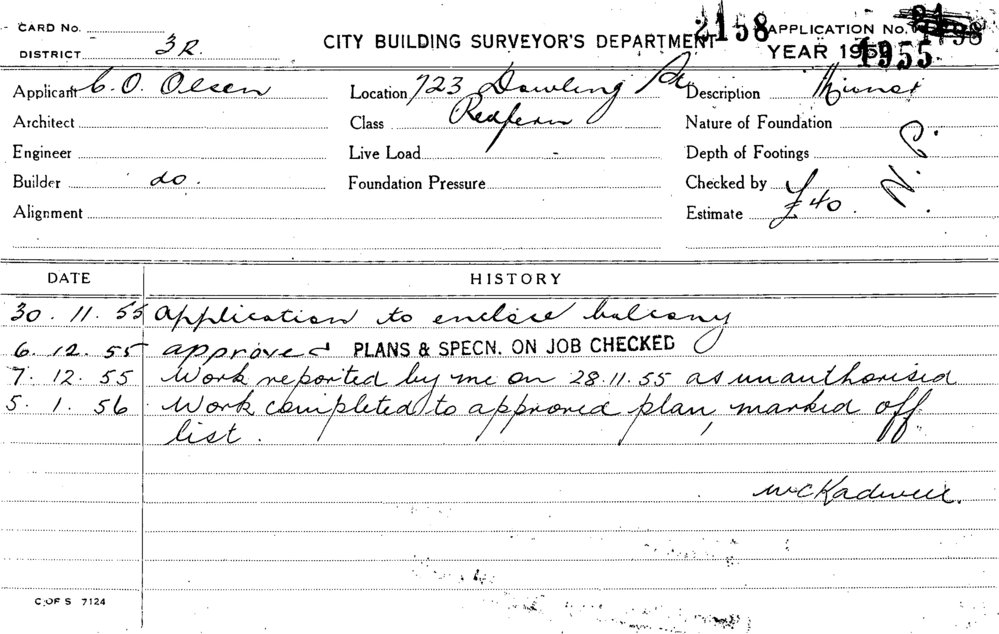 CARD No.
DISTRICT 3R.
CITY BUILDING SURVEYOR'S DEPARTMENT
2158
APPLICATION No.
YEAR 1955
Applicant C. O. Olsen
Location 723 Dowling St
Description
Architect
Class Redfern
Nature of Foundation
Engineer
Live Load
Depth of Footings
N. P.
Builder do.
Foundation Pressure
Checked by
Alignment
Estimate £40.
DATE HISTORY
30.11.55 Application to enclose balcony
6.12.55 approved PLANS & SPECN. ON JOB CHECKED
7.12.55 Work reported by me on 28.11.55 as unauthorised
5.1.56 Work completed to approved plan, marked off
list.
C. OF S 7124